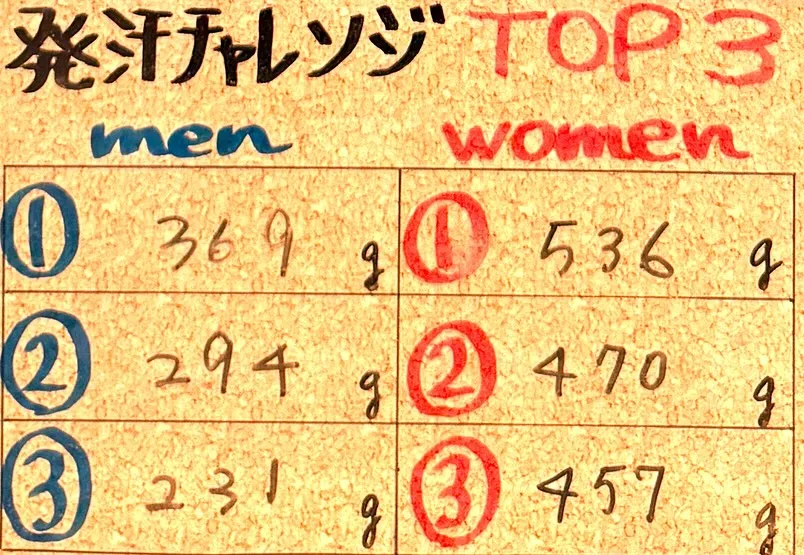 発汗チャレンジ TOP 3
men women
① 369 g ① 536 g
② 294 g ② 470 g
③ 231 g ③ 457 g